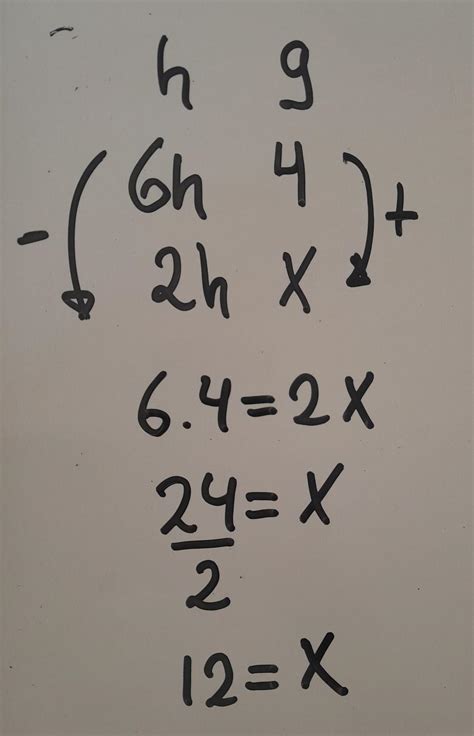 h g
6h 4
- +
2h x
6.4=2x
24/2=x
12=x